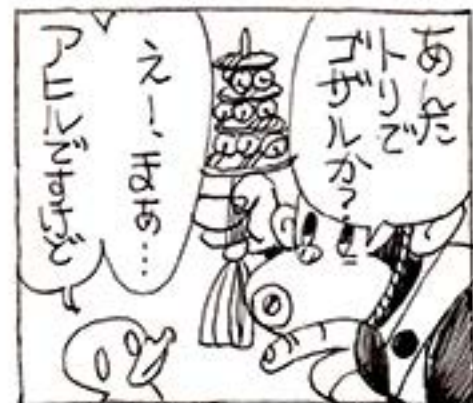 あんた
トリで
ゴザルか？
えー、まぁ…
アヒルですけど